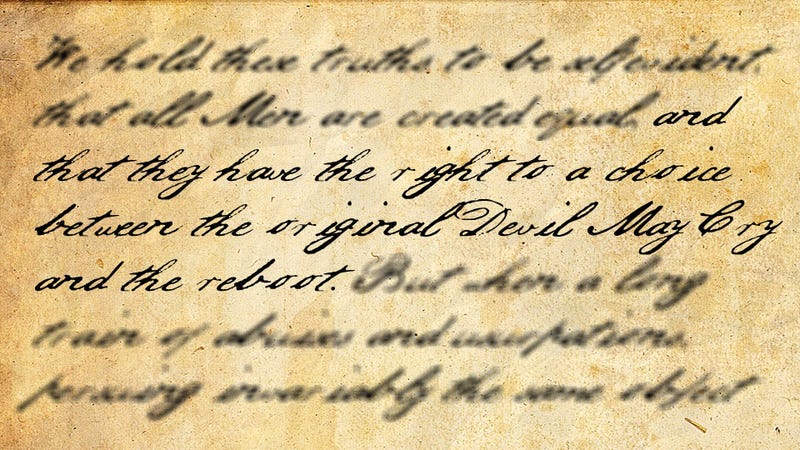 We hold these truths to be selfevident,
that all Men are created equal, and
that they have the right to a choice
between the original Devil May Cry
and the reboot. But when a long
train of abuses and usurpations,
persuing invariably the same object